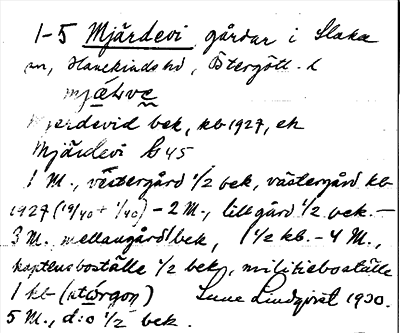 1-5 Mjärdevi gårdar i Slaka
sn, Hanekinds hd, Östergötl. l
Mjärdevid bek, kb 1927, ek
Mjärdevi G 45
1 M., västergård 1/2 bek, västergård kb
1927 (19/40 + 1/40) - 2 M., lillgård 1/2 bek. -
3 M. mellangård 1 bek, 1 1/2 kb. - 4 M.,
kaptensboställe 1/2 bek, militieboställe
1 kb Sune Lindqvist 1930.
5 M., d:o 1/2 bek.